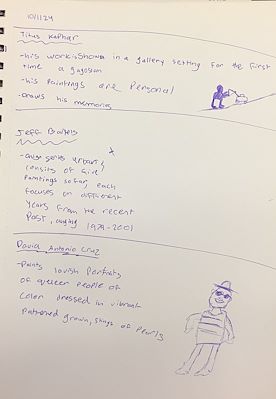 10/11/24
Titus Kaphar
-his work is shown in a gallery setting for the first
time a gagosian
-his paintings are personal
-draws his memories
Jeff
series
consits of
Paintings so far, each
focuses on different
years from the recent
Past, 1979-2001
David Antonio Cruz
-Paints lavish Portraits
of queer people of
Color dressed in vibrant
Patterned gown, strings of pearls